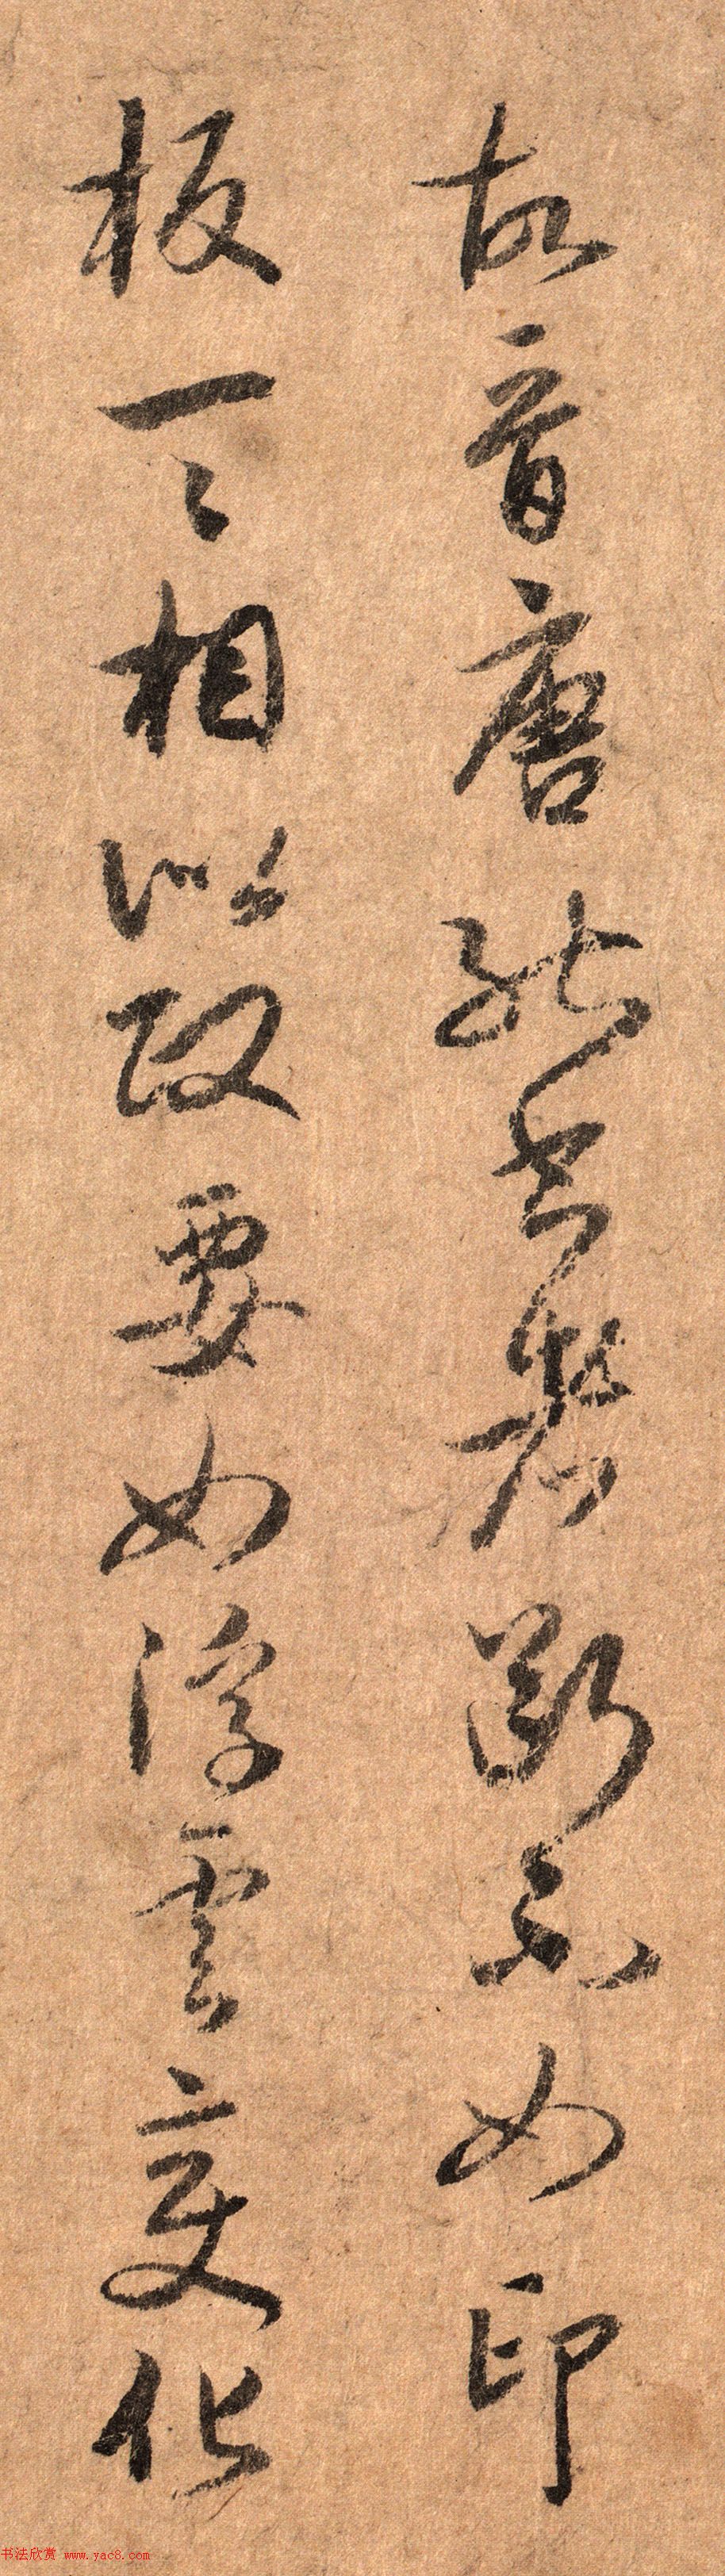 故晋唐能書者断不如印
板一一相似政要如浮雲变化
书法欣赏 www.yac8.com